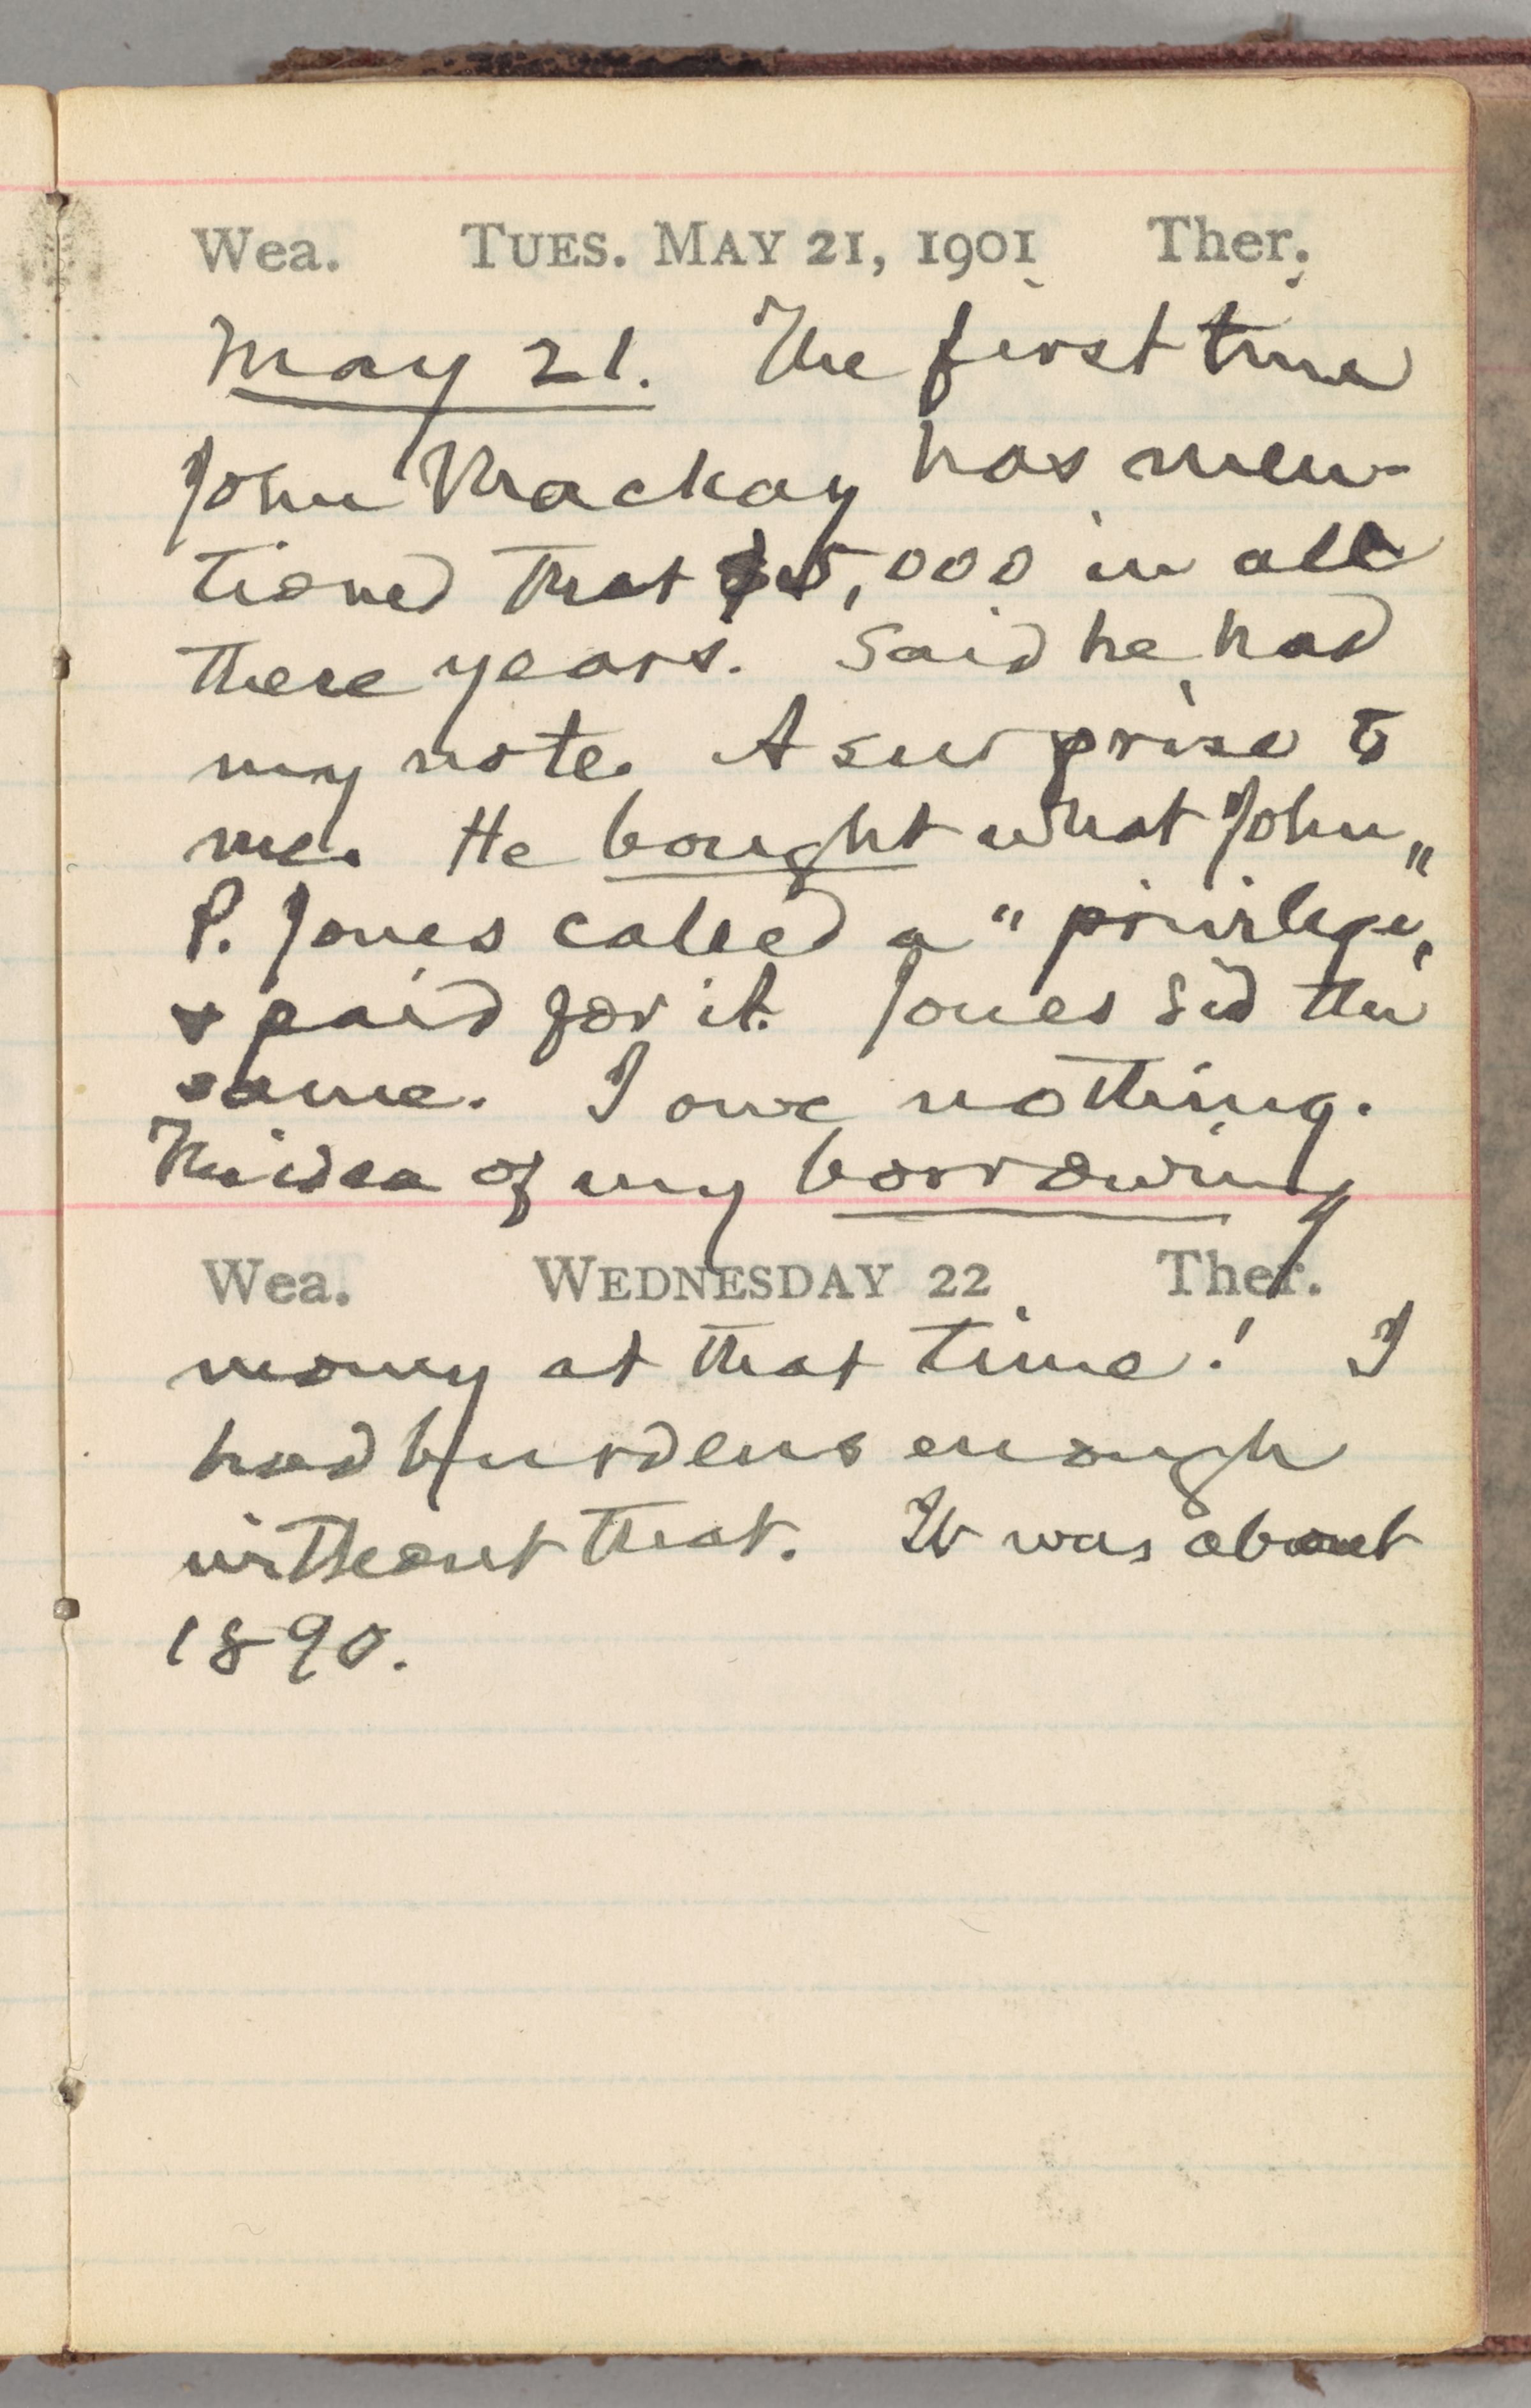 Wea. TUES. MAY 21, 1901 Ther.
May 21. The first time
John Mackay has men-
tioned that $5,000 in all
these years. Said he had
my note. A surprise to
me. He bought what John
P. Jones called a "privilege,"
& paid for it. Jones did the
same. I owe nothing.
The idea of my borrowing
Wea. WEDNESDAY 22 Ther.
money at that time! I
had burdens enough
without that. It was about
1890.